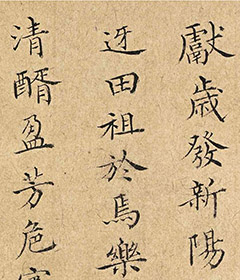 獻歲發新陽
迓田祖於焉樂
清醑盈芳卮